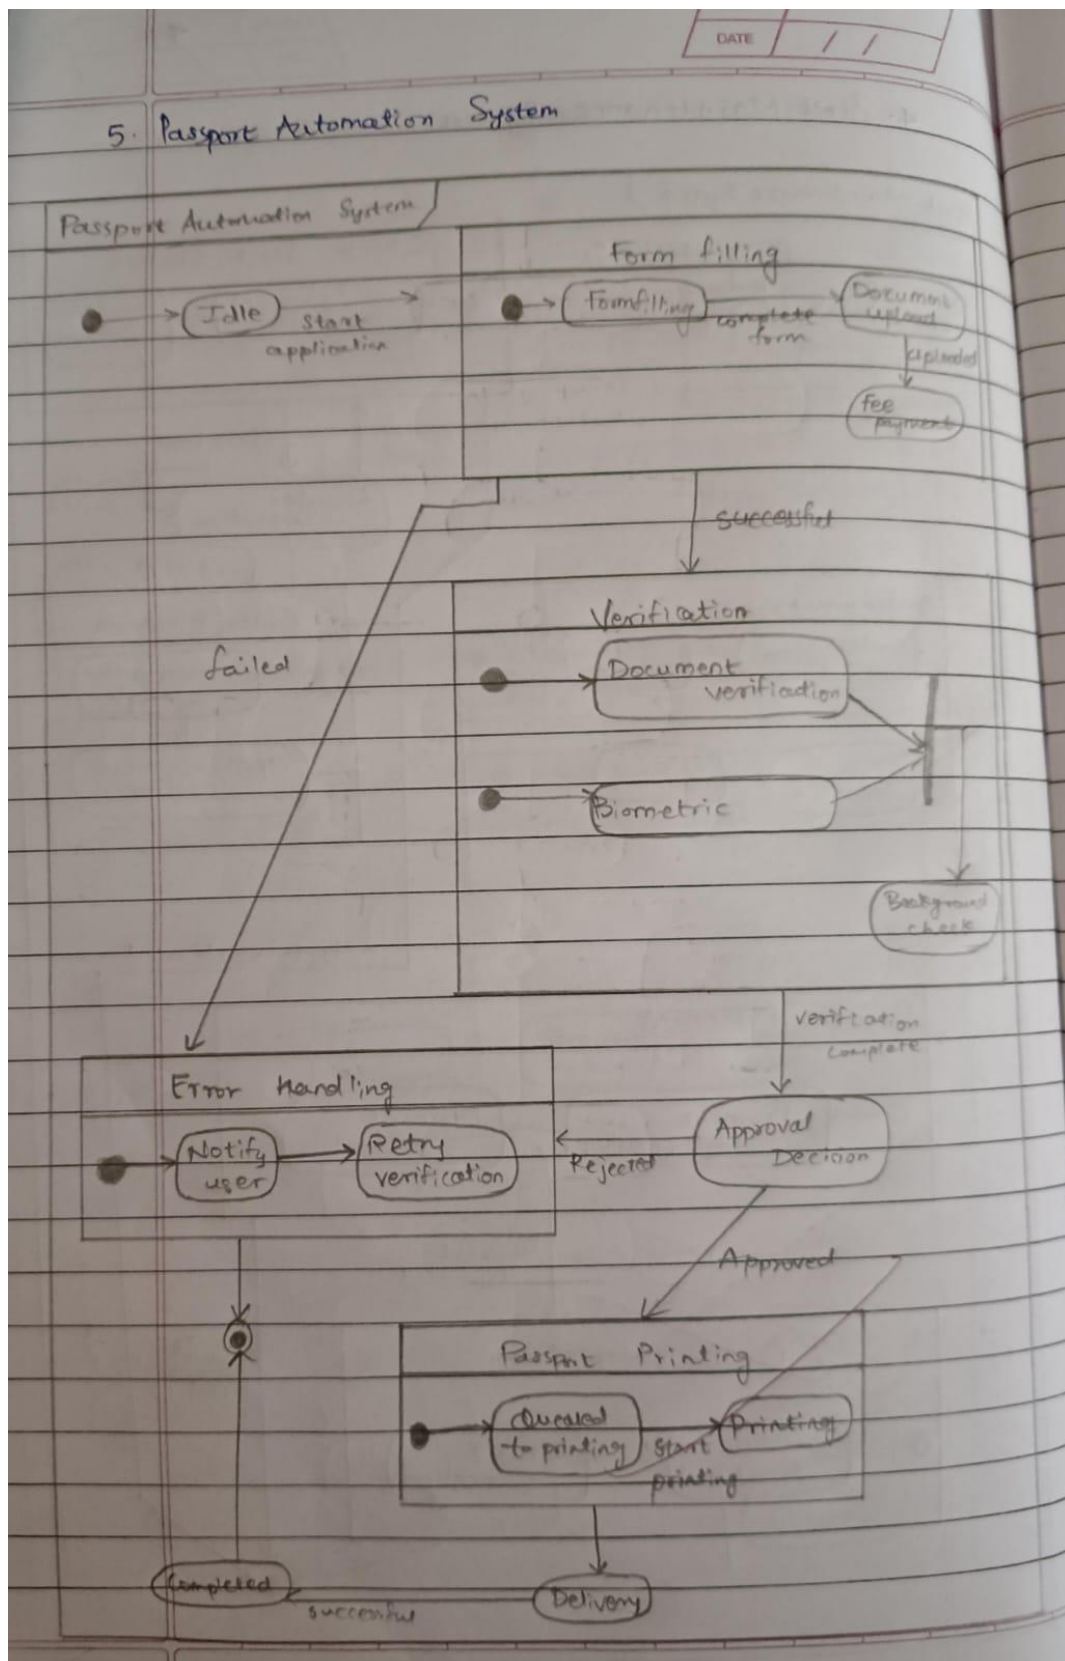 DATE / /
5. Passport Automation System
Passport Automation System
Form filling
Idle
start
application
Formfilling
complete
form
Document
upload
Uploaded
Fee
payment
successful
failed
Verification
Document
verification
Biometric
Background
check
verification
complete
Error Handling
Notify
user
Retry
verification
Rejected
Approval
Decision
Approved
Passport Printing
Queued
to printing
Start
printing
Printing
Completed
successful
Delivery